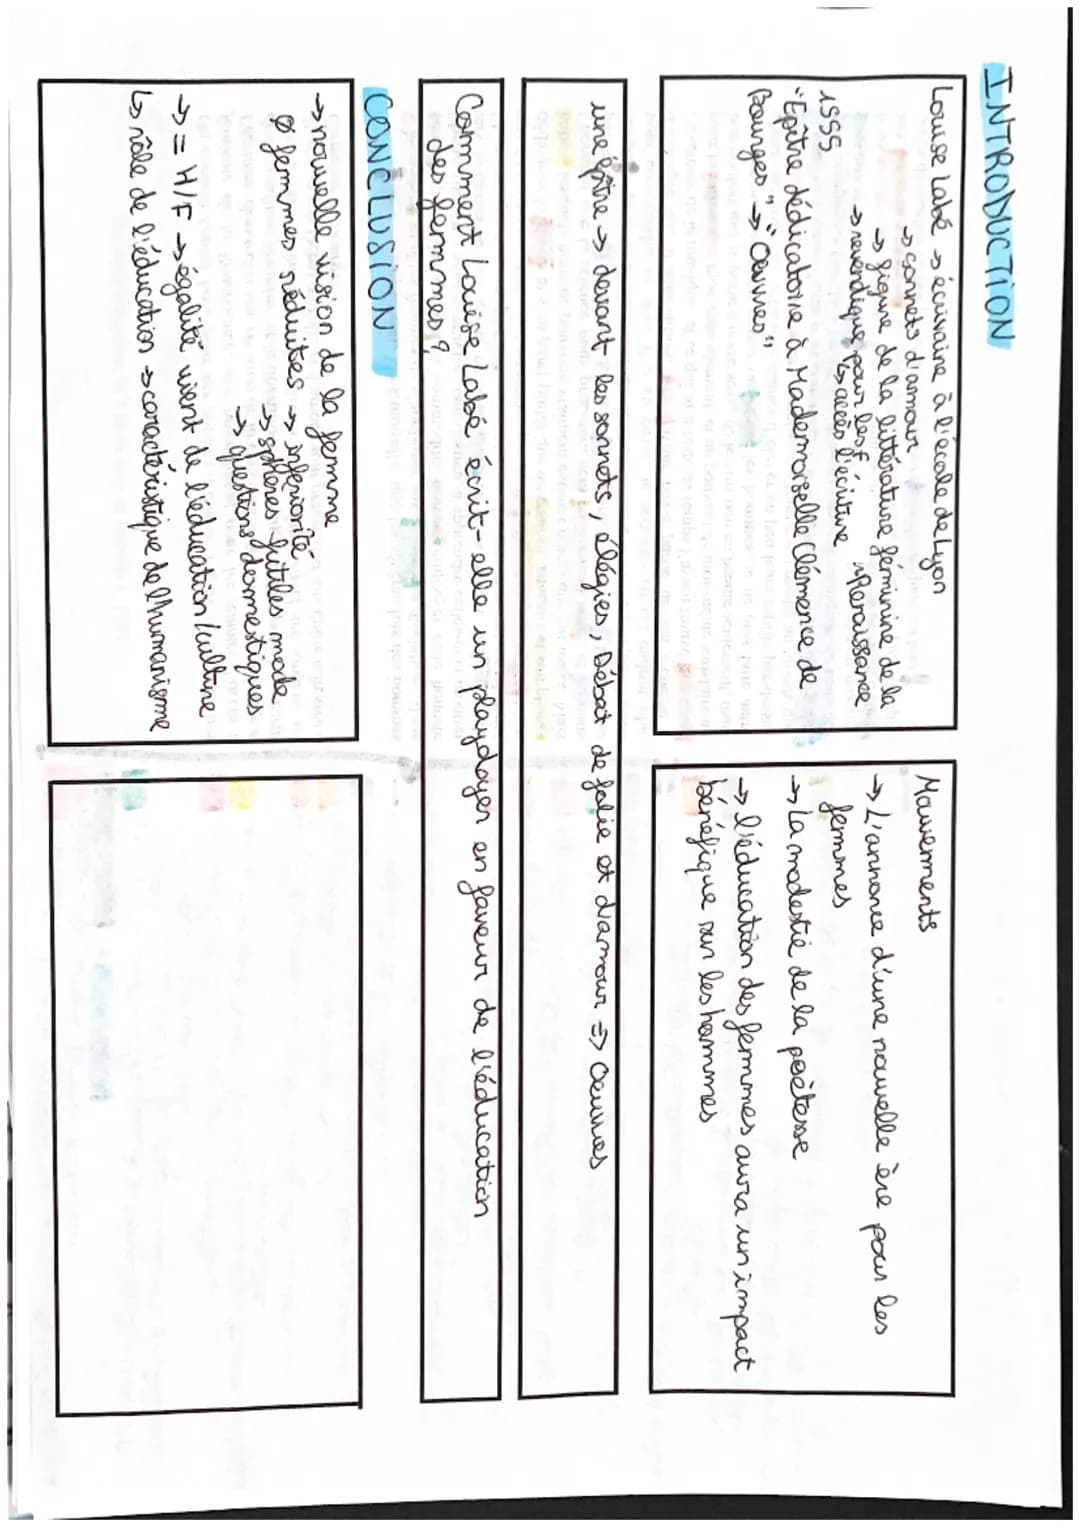 INTRODUCTION
Louise Labé → écrivaine à l'école de Lyon
→ sonnets d'amour
→ figure de la littérature féminine de la
Renaissance
→ revendique pour les f
↳ accès l'écriture
1555
"Epître dédicatoire à Mademoiselle Clémence de
Bourges" → "Oeuvres"
Mouvements
→ L'annonce d'une nouvelle ère pour les
femmes
→ La modestie de la poétesse
→ l'éducation des femmes aura un impact
bénéfique sur les hommes
une épître → devant les sonnets, élégies, Débat de folie et d'amour => Oeuvres
Comment Louise Labé écrit-elle un playdoyer en faveur de l'éducation
des femmes ?
CONCLUSION
→ nouvelle vision de la femme
Ø femmes réduites → infériorité
→ sphères futiles mode
→ questions domestiques
→ = H/F → égalité vient de l'éducation/culture
↳ rôle de l'éducation → caractéristique de l'humanisme